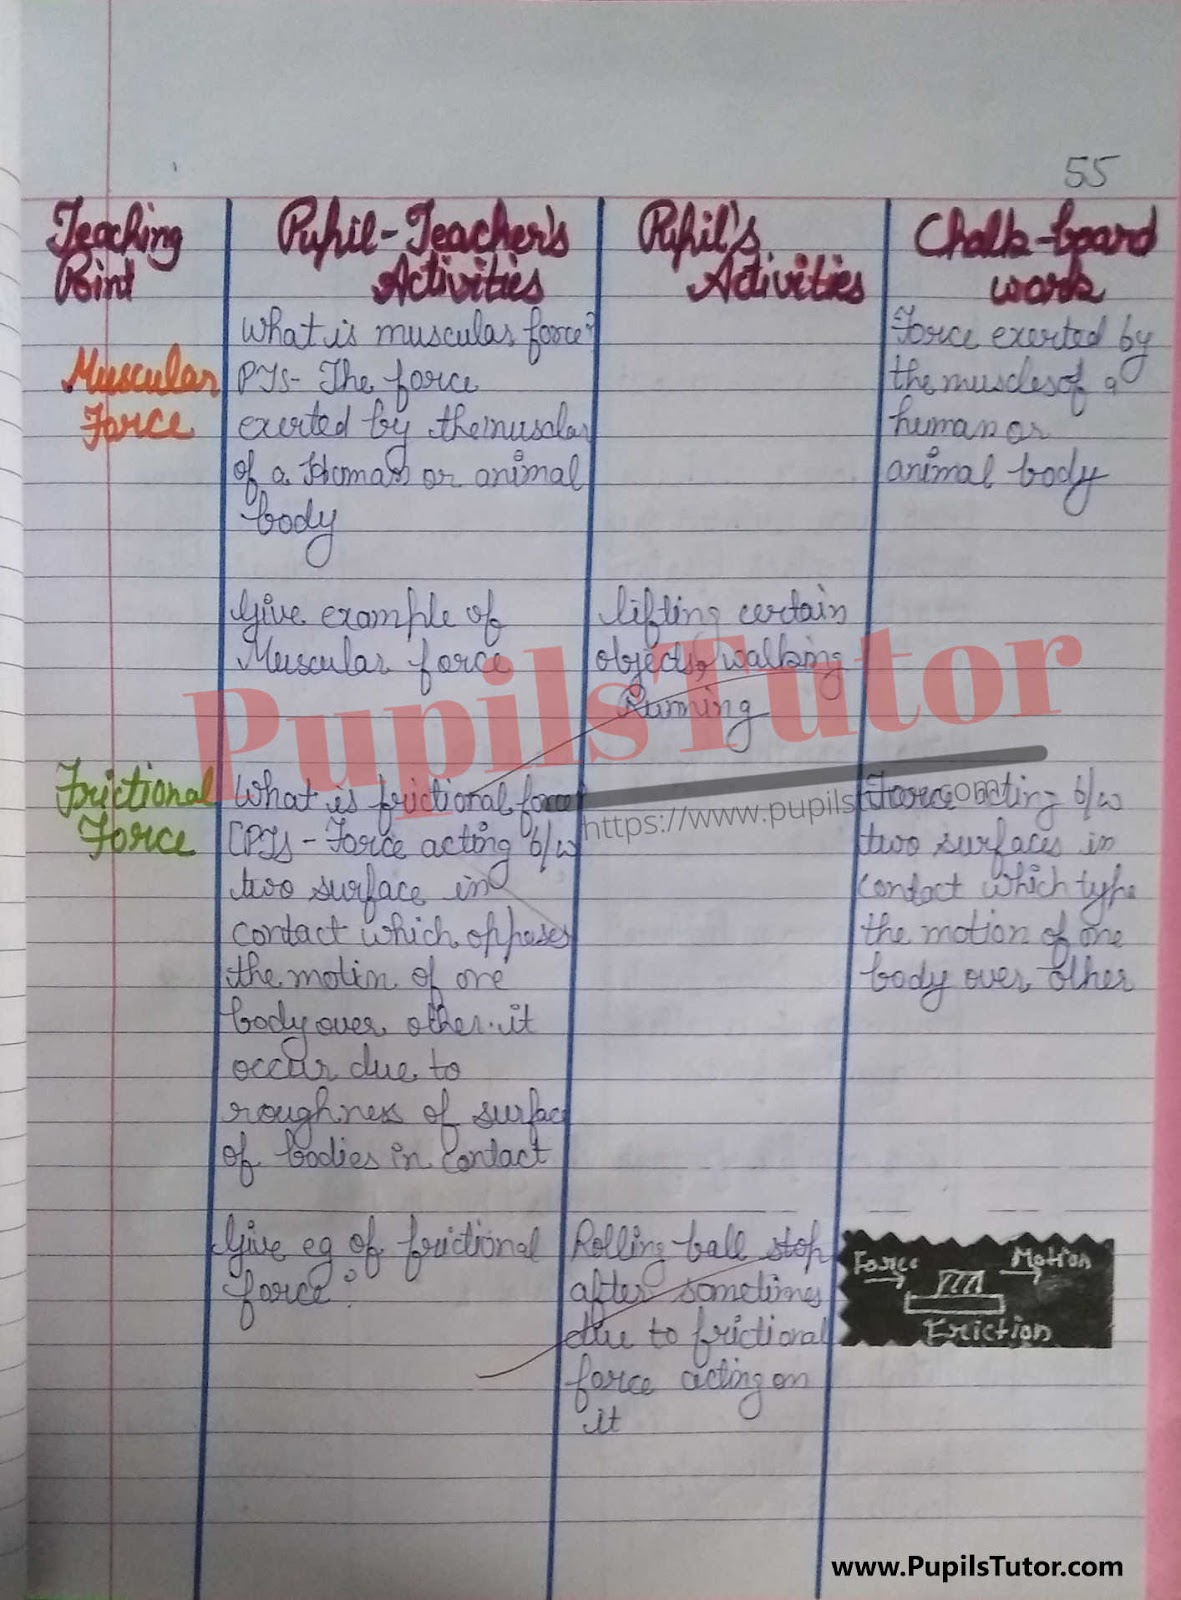 55
Teaching
Point
Pupil-Teacher's
Activities
Pupil's
Activities
Chalk-board
work
Muscular
Force
What is muscular force?
PTS- The force
exerted by the muscular
of a Human or animal
body
Force exerted by
the muscles of a
human or
animal body
Give example of
Muscular force
lifting certain
objects, walking
Running
Frictional
Force
What is frictional force
[PTS - Force acting b/w
two surface in
contact which opposes
the motin of one
body over other. it
occur due to
roughness of surface
of bodies in Contact
Force acting b/w
two surfaces in
contact which type
the motion of one
body over other
Give eg of frictional
force?
Rolling ball stop
after sometimes
due to frictional
force acting on
it
Force
Motion
Friction
PupilsTutor
https://www.pupilstutor.com
www.PupilsTutor.com